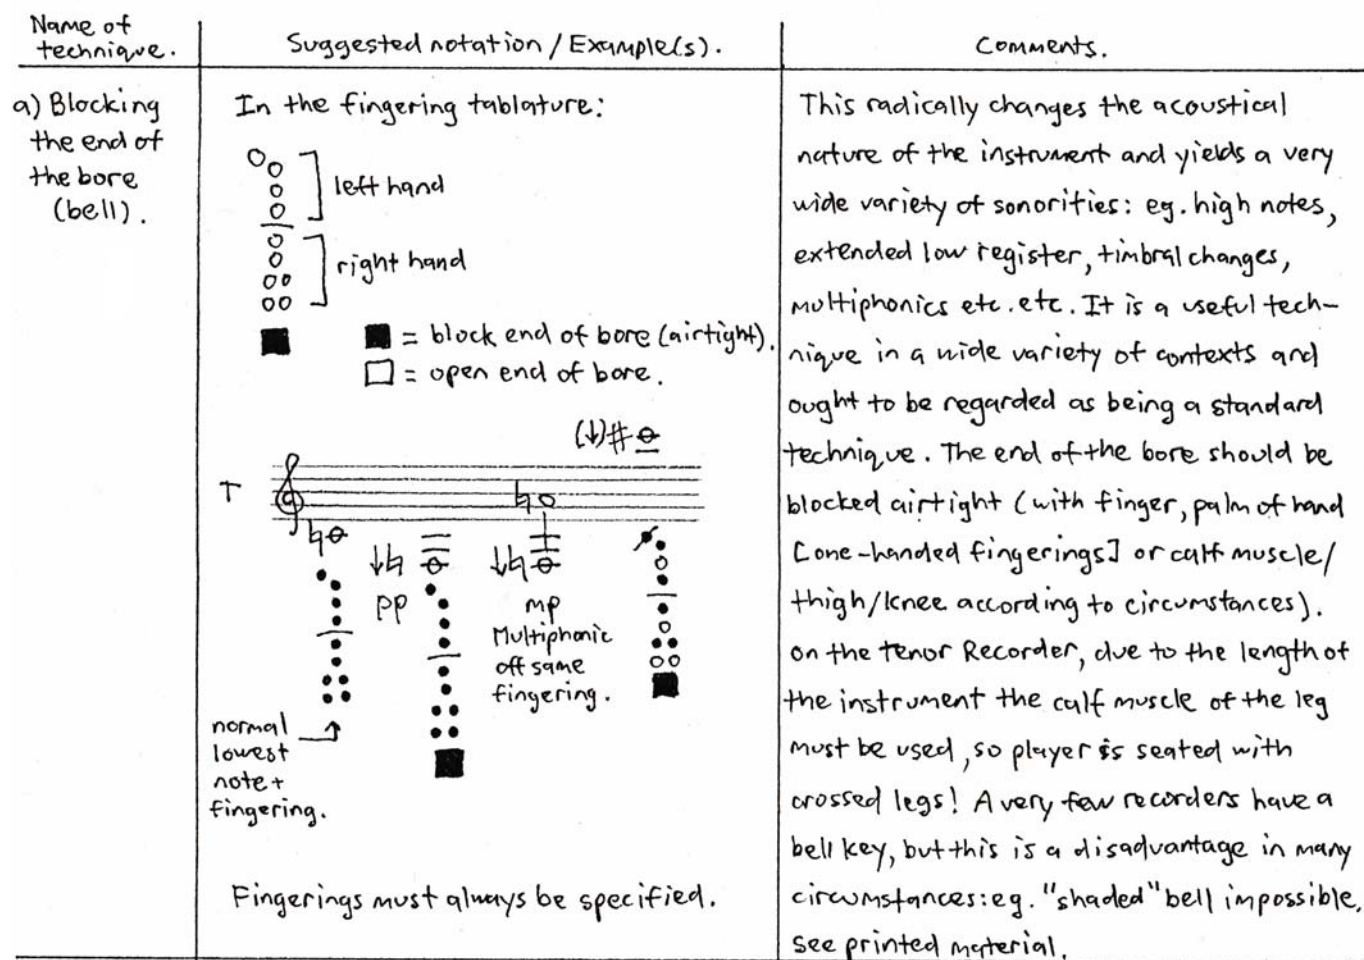 Name of
technique.
Suggested notation / Example(s).
Comments.
a) Blocking
the end of
the bore
(bell).
In the fingering tablature:
left hand
right hand
■ = block end of bore (airtight).
□ = open end of bore.
(↓)#
T
↓♮
pp
↓♮
mp
Multiphonic
off same
fingering.
normal
lowest
note +
fingering.
Fingerings must always be specified.
This radically changes the acoustical
nature of the instrument and yields a very
wide variety of sonorities: eg. high notes,
extended low register, timbral changes,
multiphonics etc. etc. It is a useful tech-
nique in a wide variety of contexts and
ought to be regarded as being a standard
technique. The end of the bore should be
blocked airtight (with finger, palm of hand
[one-handed fingerings] or calf muscle/
thigh/knee according to circumstances).
on the tenor Recorder, due to the length of
the instrument the calf muscle of the leg
must be used, so player is seated with
crossed legs! A very few recorders have a
bell key, but this is a disadvantage in many
circumstances: eg. "shaded" bell impossible.
see printed material.